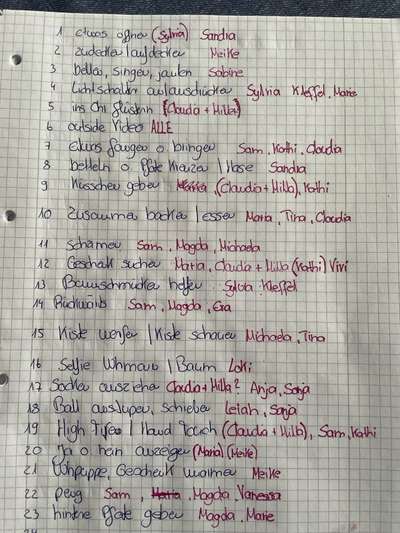 1 etwas öffnen (Sylvia) Sandra
2 zudecken / aufdecken Meike
3 bellen, singen, jaulen Sabine
4 Lichtschalter an/ausdrücken Sylvia Kleffel, Marie
5 ins Ohr flüstern (Claudia + Hilla)
6 outside Video ALLE
7 etwas fangen o bringen Sam, Kathi, Claudia
8 betteln o. Pfote Kreuzen / Nose Sandra
9 Küsschen geben (Claudia + Hilla), Kathi
10 Zusammen backen / essen Maria, Tina, Claudia
11 schämen Sam, Magda, Michaela
12 Geschenk suchen Maria, Claudia + Hilla (Kathi) Vivi
13 Baumschmücken helfen Sylvia Kleffel
14 Rückwärts Sam, Magda, Eva
15 Kiste werfen / Kiste schauen Michaela, Tina
16 Selfie / Baum Loki
17 Socken ausziehen Claudia + Hilla? Anja, Sonja
18 Ball, schieben Leiah, Sonja
19 High Five / Hand Touch (Claudia + Hilla), Sam, Kathi
20 Ja o Nein anzeigen (Maria) (Meike)
21 Geschenk Meike
22 peng Sam, Maria, Magda, Vanessa
23 hintere Pfote geben Magda, Marie